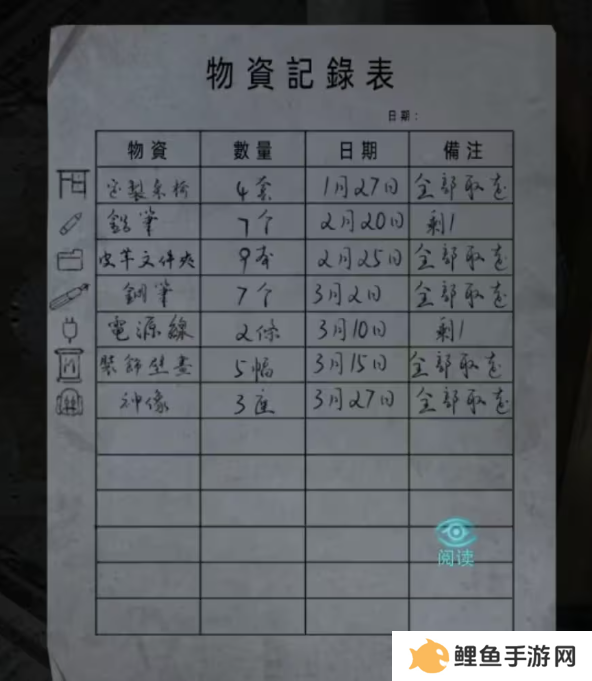 物資記錄表
日期：
物資 數量 日期 備注
定製桌椅 4套 1月27日 全部取走
鉛筆 7个 2月20日 剩1
皮革文件夾 9本 2月25日 全部取走
鋼筆 7个 3月2日 全部取走
電源線 2條 3月10日 剩1
裝飾壁畫 5幅 3月15日 全部取走
神像 3座 3月27日 全部取走
阅读
鲤鱼手游网